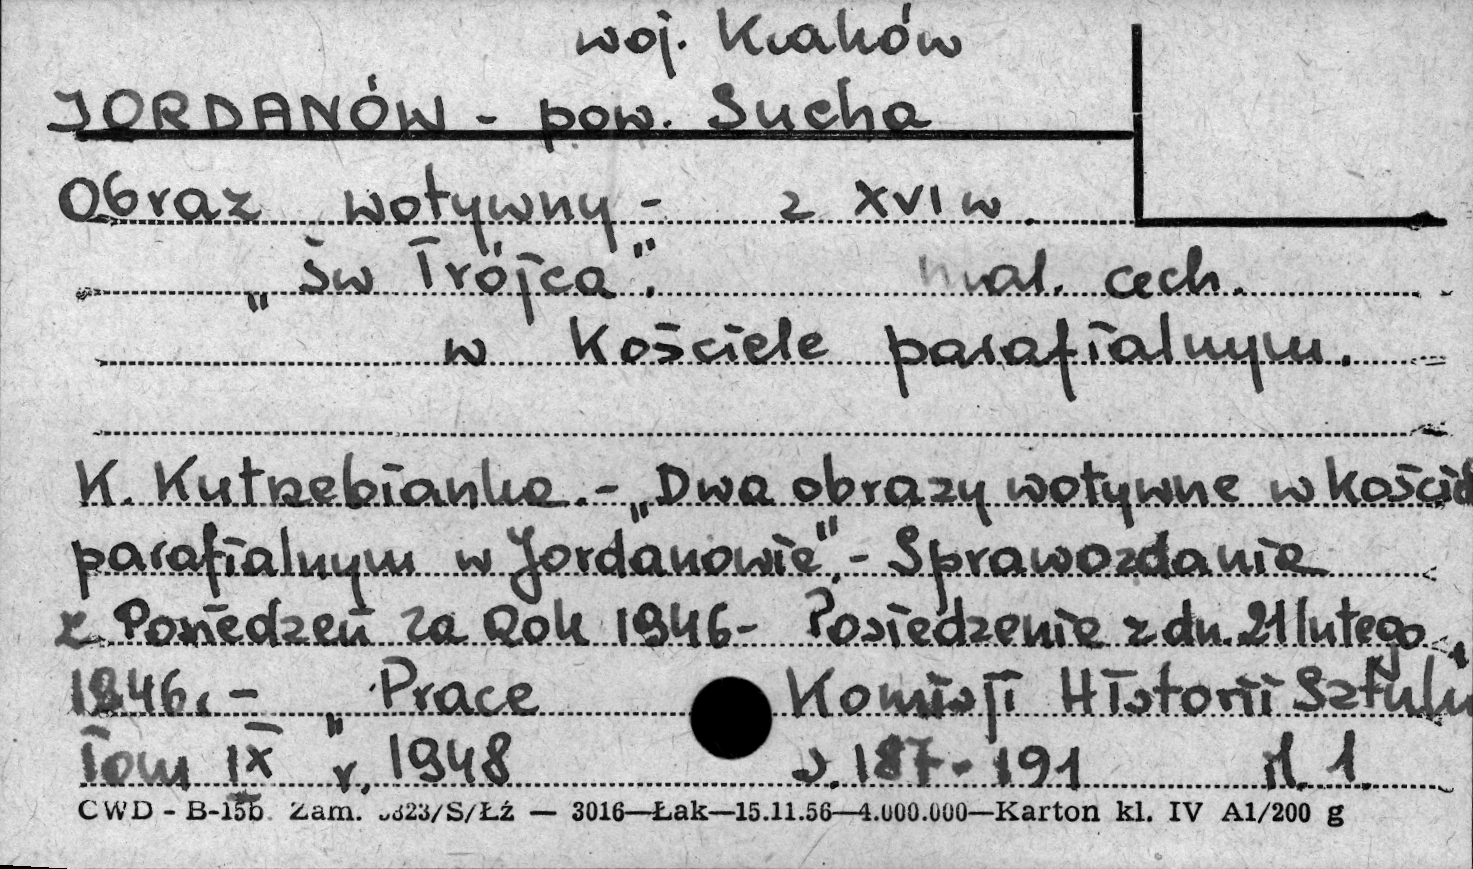 woj. Kraków
JORDANÓW - pow. Sucha
Obraz wotywny - z XVI w.
„Św Trójca". mal. cech.
w Kościele parafialnym.
K. Kutrzebianka. - „Dwa obrazy wotywne w Kościel
parafialnym w Jordanowie". - Sprawozdanie
z Posiedzeń za Rok 1946 - Posiedzenie z dn. 21 lutego
1946. - „Prace Komisji Historii Sztuki
Tom IX r. 1948 s. 187-191 il. 1.
CWD - B-15b Zam. 3823/S/Łź — 3016—Łak—15.11.56—4.000.000—Karton kl. IV A1/200 g